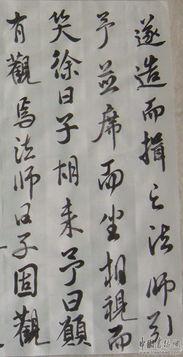 遂造而揖之法師引
予並席而坐相視而
笑徐曰子胡来予曰願
有觀焉法師曰子固觀